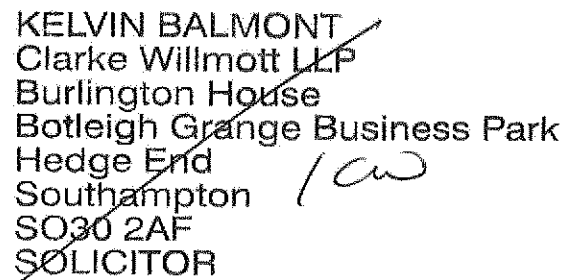 KELVIN BALMONT
Clarke Willmott LLP
Burlington House
Botleigh Grange Business Park
Hedge End
Southampton
SO30 2AF
SOLICITOR